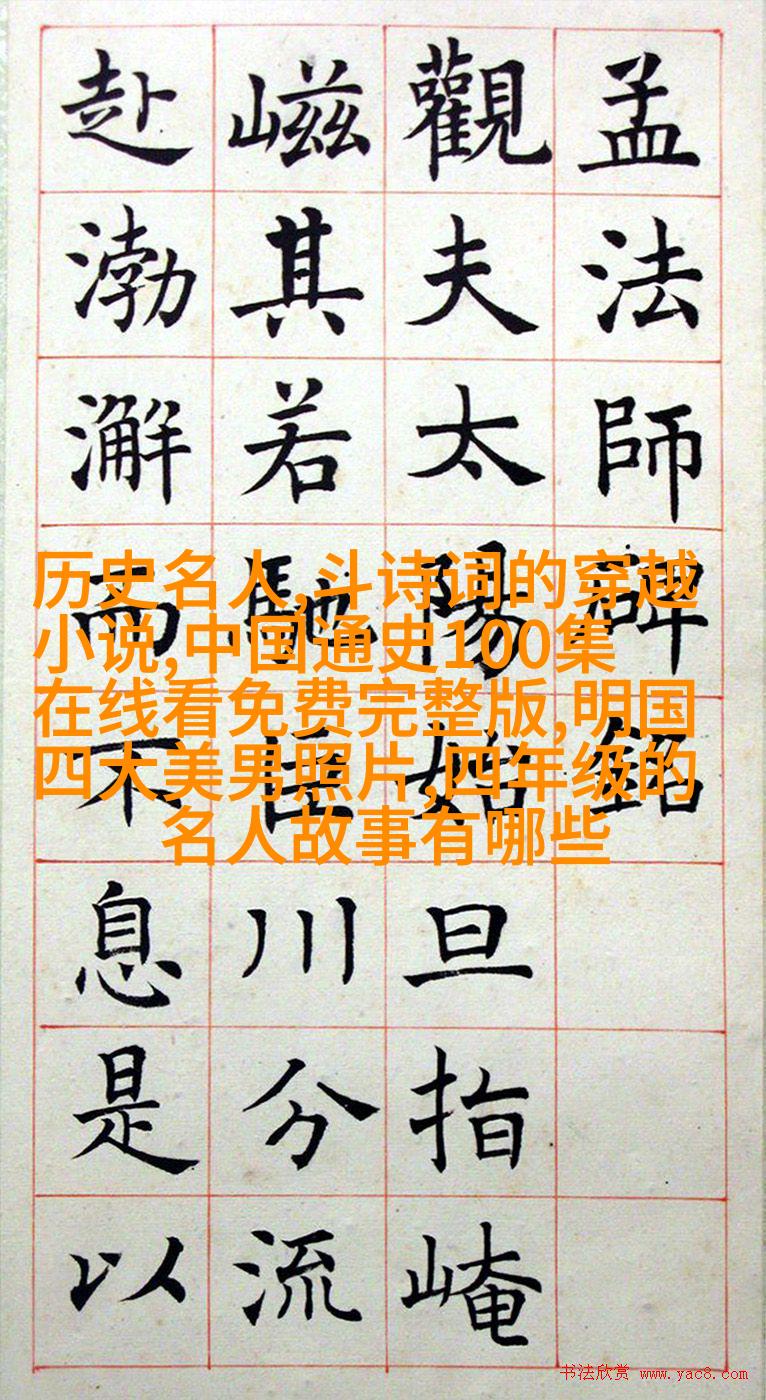 孟法師碑銘
觀夫太陽始旦指崦
嵫其若馳川分流
赴渤澥而不息是以
历史名人,斗诗词的穿越
小说,中国通史100集
在线看免费完整版,明国
四大美男照片,四年级的
名人故事有哪些
书法欣赏 www.yac8.com